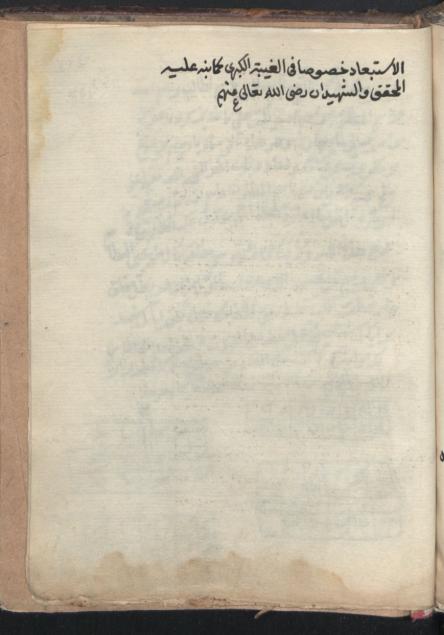 الاستبعاد خصوصا فى الغيبة الكبرى كما نبه عليه
المحقق والشهيدان رضى الله تعالى عنهم